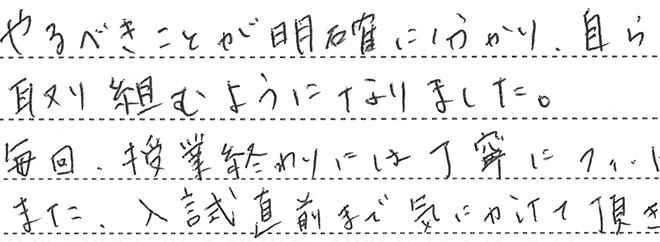 やるべきことが明確に分かり、自ら
取り組むようになりました。
毎回、授業終わりには丁寧に
また、入試直前まで気にかけて頂き